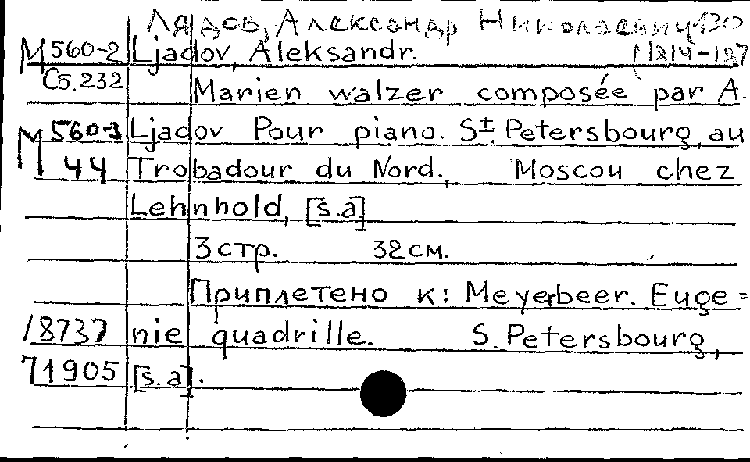 Лядовъ, Александр Николаевич
M 560-2 Ljadov, Aleksandr.
C5.232 Marien walzer composée par A.
M 560-3 Ljadov Pour piano. St. Petersbourg, au
44 Trobadour du Nord., Moscou chez
Lehnhold, [s.a]
3 стр. 32 см.
Приплетено к: Meyerbeer. Euge=
18737 nie quadrille. S. Petersbourg,
71905 [s.a].